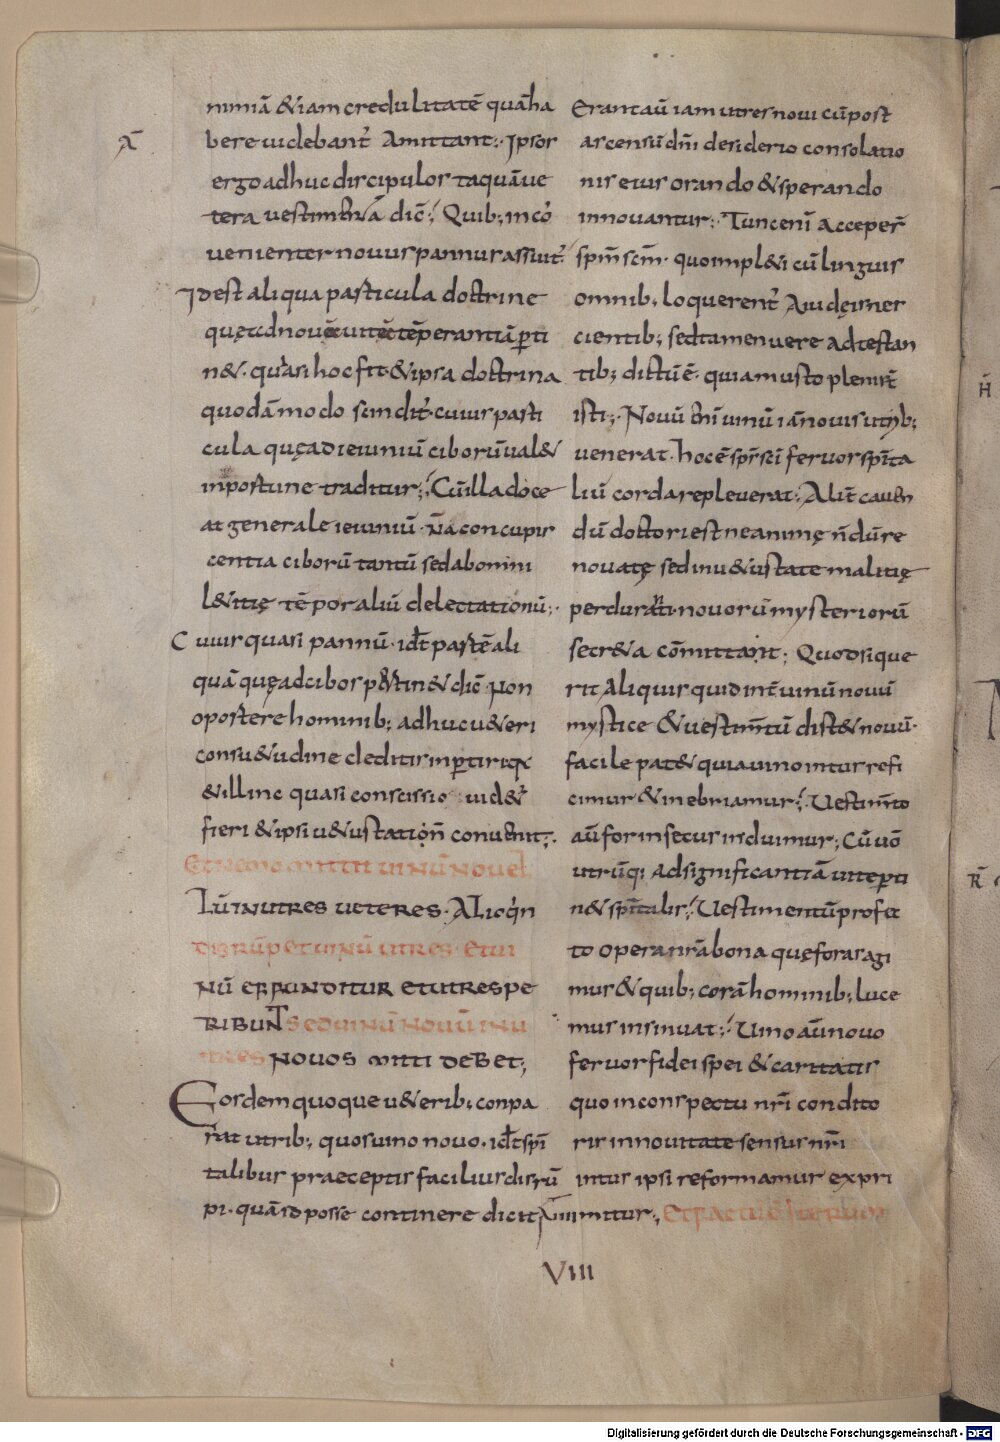 nimiā & iam credulitatē quā ha
bere uidebant᷑ Amittant; Ipsos
ergo adhuc discipulos taquā ue
tera uestimtña dic̄; Quib; incō
uenienter nouus pannus assuit᷑
Idest aliqua particula doctrine
quę ad nouę uitę tēperantiā ꝑti
n&. quasi hoc fit & ipsa doctrina
quodāmodo scindit᷑. cuius parti
cula quę ad ieiuniū ciborū ual&
inportune traditur; Cū illa doce
at generale ieiuniū. ñ a concupis
centia ciborū tantū sed ab omni
l&itię tēporaliū delectationū;
Cuius quasi pannū. idt̄ partē ali
quā quę ad cibos ptin& dic̄ Non
oportere hominib; adhuc u&eri
consu&udine deditis inꝑtiri qa
& illinc quasi conscissio uid&᷑
fieri & ipsi u&ustationi ñ conuenit;
Et nemo mittit uinū nouel
Lū in utres ueteres. Alioqin
disrūpet uinū utres. et ui
nū effunditur et utres pe
ribunt Sed uinū nouū in u
tres nouos mitti debet;
Eosdem quoque u&erib; conpa
rat utrib; quos uino nouo. idt̄ spi
talibus praeceptis facilius disrū
pi. quā id posse continere dicit
A
Erant aū iam utres noui cū post
ascensū dn̄i desiderio consolatio
nis eius orando & sperando
innouantur; Tunc enī acceper̄
spm̄ scm̄. quo impl&i cū linguis
omnib; loquerent᷑ A iudęis nes
cientib; sed tamen uere adtestan
tib; dictū ē. quia musto pleni st̄
isti; Nouū eni uinū iā nouis utrib;
uenerat. hoc ē sps̄ sci feruor spīta
liū corda repleuerat; Alit̄ cauen
dū doctori est ne animę ñdū re
nouatę sed in u&ustate malitię
perduranti nouorū mysteriorū
secr&a cōmittant; Quodsi que
rit aliquis quid int̄ uinū nouū
mystice & uestimtū dist& nouū.
facile pat& quia uino intus refi
cimur & inebriamur; Uestimto
aū forinsecus induimur; Cū uō
utrūq; ad significantiā uitę ꝑti
n& spītalis; Uestimentū profec
to opera nr̄a bona quę foras agi
mus & quib; corā hominib; luce
mus insinuat; Uino aū nouo
feruor fidei spei & caritatis
quo in conspectu nr̄i condito
ris in nouitate sensus nr̄i
intus ipsi reformamur expri
mitur; Et factū ē iterum
VIII
Digitalisierung gefördert durch die Deutsche Forschungsgemeinschaft - DFG